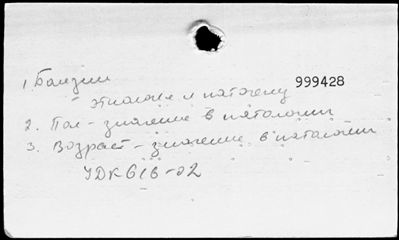 1. Болезни
999428
- этиология и патогенез
2. Пол - значение в патологии
3. Возраст - значение в патологии
УДК 616-02